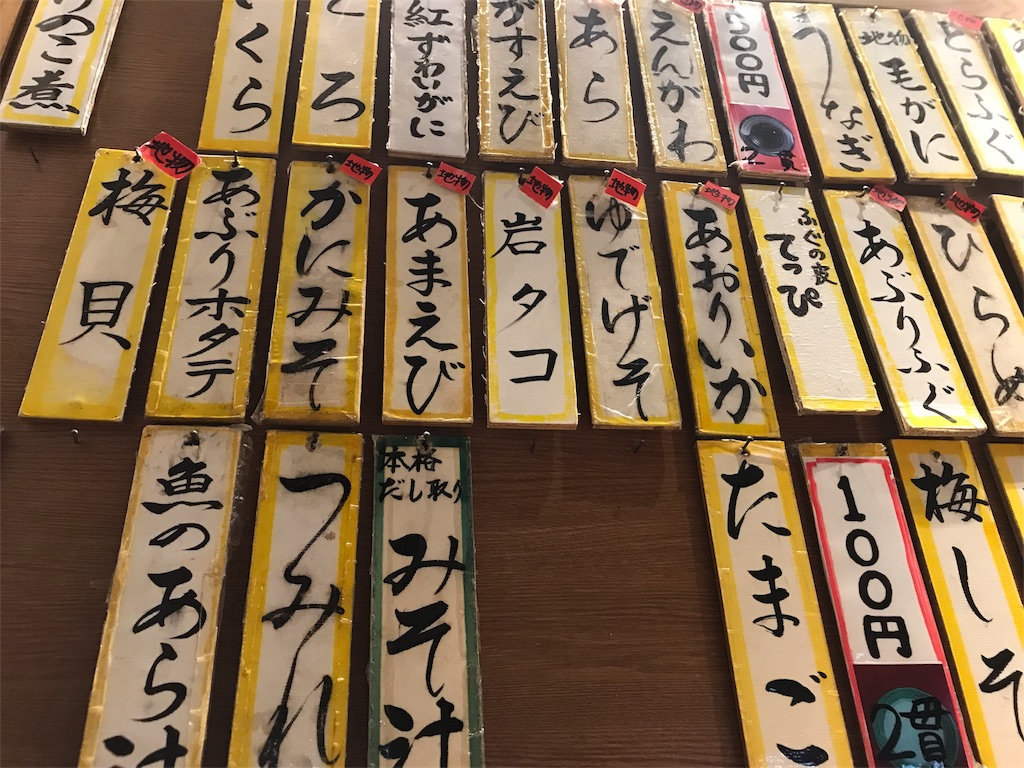 のこ煮
いくら
とろ
紅ずわいがに
がすえび
あら
えんがわ
300円
2貫
うなぎ
地物
毛がに
とらふぐ
地物
梅貝
あぶりホタテ
地物
かにみそ
地物
あまえび
地物
岩タコ
地物
ゆでげそ
地物
あおりいか
ふぐの皮
てっぴ
地物
あぶりふぐ
地物
ひらめ
魚のあら汁
つみれ
本格
だし取り
みそ汁
たまご
100円
2貫
梅しそ